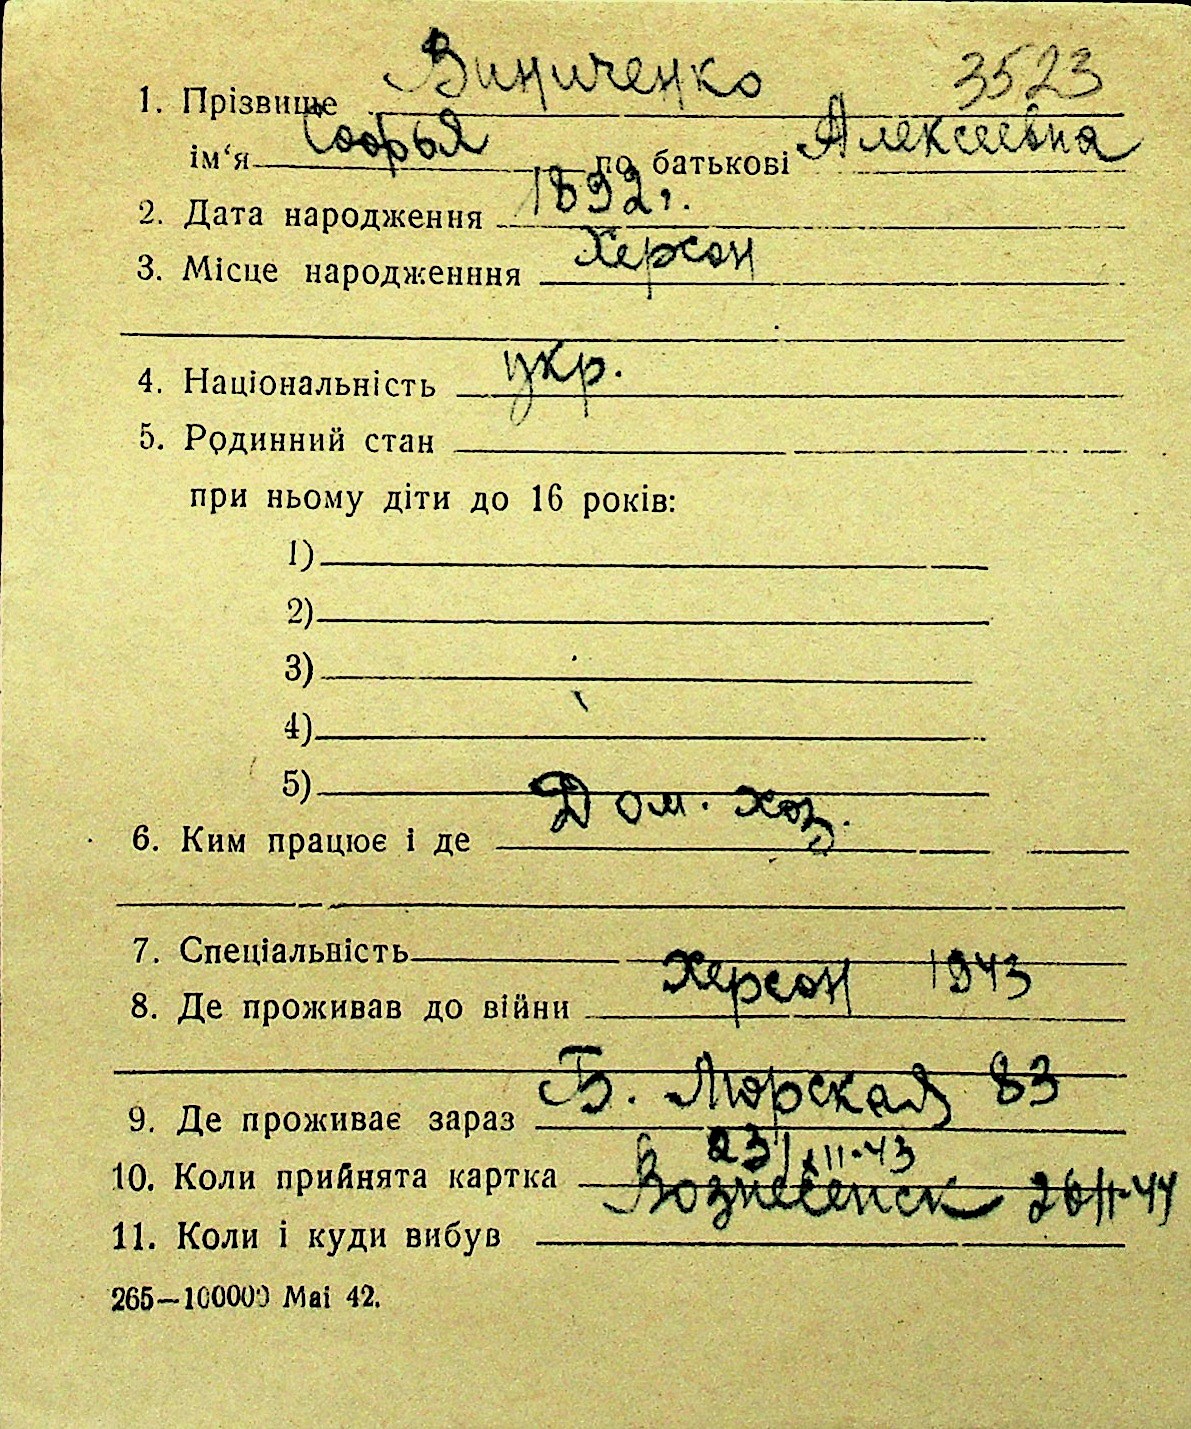 1. Прізвище Виниченко 3523
ім‘я Софья по батькові Алексеевна
2. Дата народження 1892 г.
3. Місце народженння Херсон
4. Національність укр.
5. Родинний стан
при ньому діти до 16 років:
1)
2)
3)
4)
5)
6. Ким працює і де Дом. хоз.
7. Спеціальність
8. Де проживав до війни Херсон 1943
9. Де проживає зараз Б. Морская 83
10. Коли прийнята картка 23/XII-43
11. Коли і куди вибув Вознесенск 26/II-44
265—100000 Mai 42.